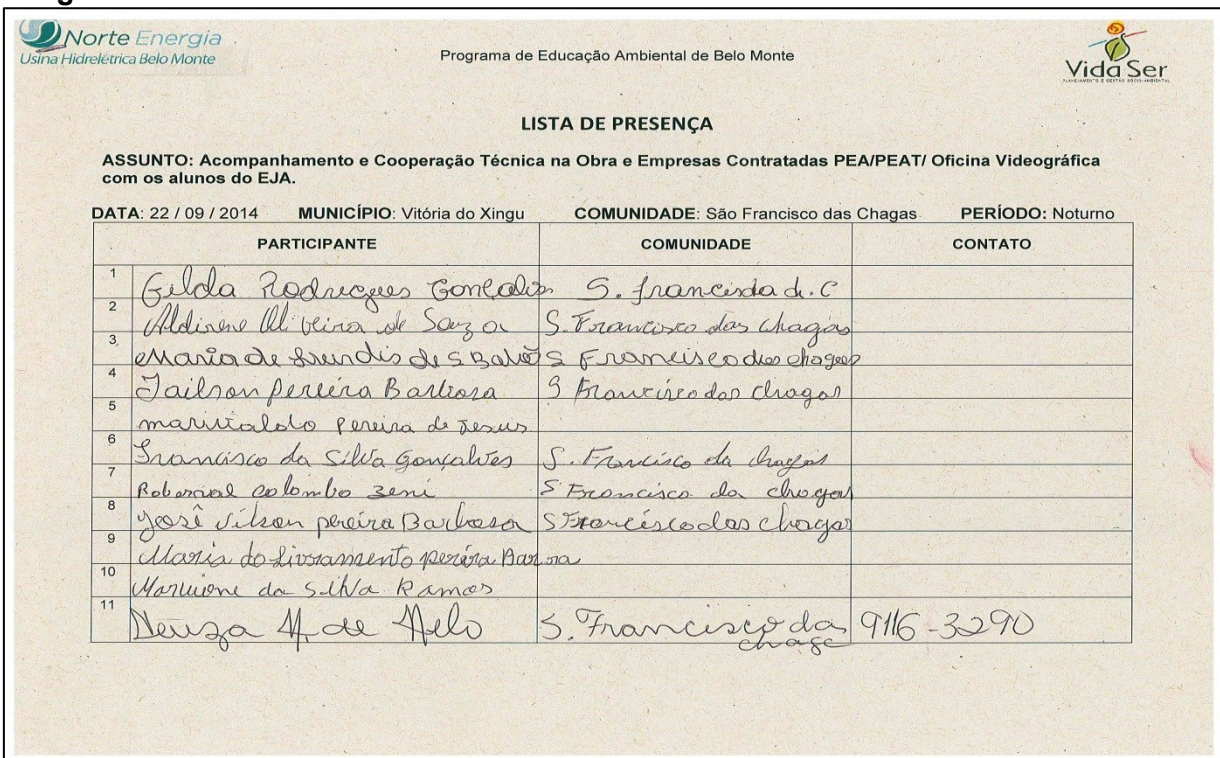 Norte Energia
Usina Hidrelétrica Belo Monte
Programa de Educação Ambiental de Belo Monte
Vida Ser
PLANEJAMENTO E GESTÃO SÓCIO-AMBIENTAL
LISTA DE PRESENÇA
ASSUNTO: Acompanhamento e Cooperação Técnica na Obra e Empresas Contratadas PEA/PEAT/ Oficina Videográfica
com os alunos do EJA.
DATA: 22 / 09 / 2014 MUNICÍPIO: Vitória do Xingu COMUNIDADE: São Francisco das Chagas PERÍODO: Noturno
PARTICIPANTE COMUNIDADE CONTATO
1 Gilda Rodrigues Gonçalves S. francisda d. C
2 Aldirene Oliveira de Souza S. Francisco das chagas
3 Maria de de S S Francisco das chagas
4 Jailson pereira Barbosa S Francisco das chagas
5 marivaldo pereira de Jesus
6 Francisco da Silva Gonçalves S. Francisco da chagas
7 colombo zeni S Francisco da chagas
8 José Vilson pereira Barbosa S Francisco das chagas
9 Maria do Livramento pereira
10 da Silva Ramos
11 Neuza M de Melo S. Francisco das 9116-3290
chage